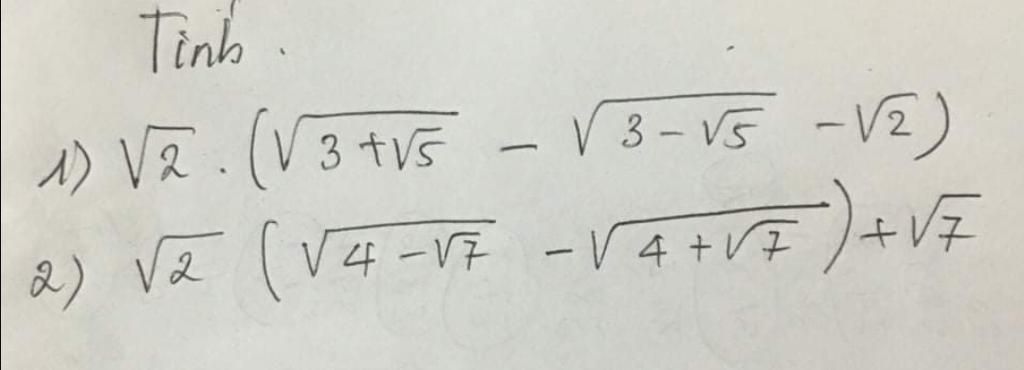 Tính.
1) √2 . (√(3+√5) - √(3-√5) - √2)
2) √2 (√(4-√7) - √(4+√7)) + √7